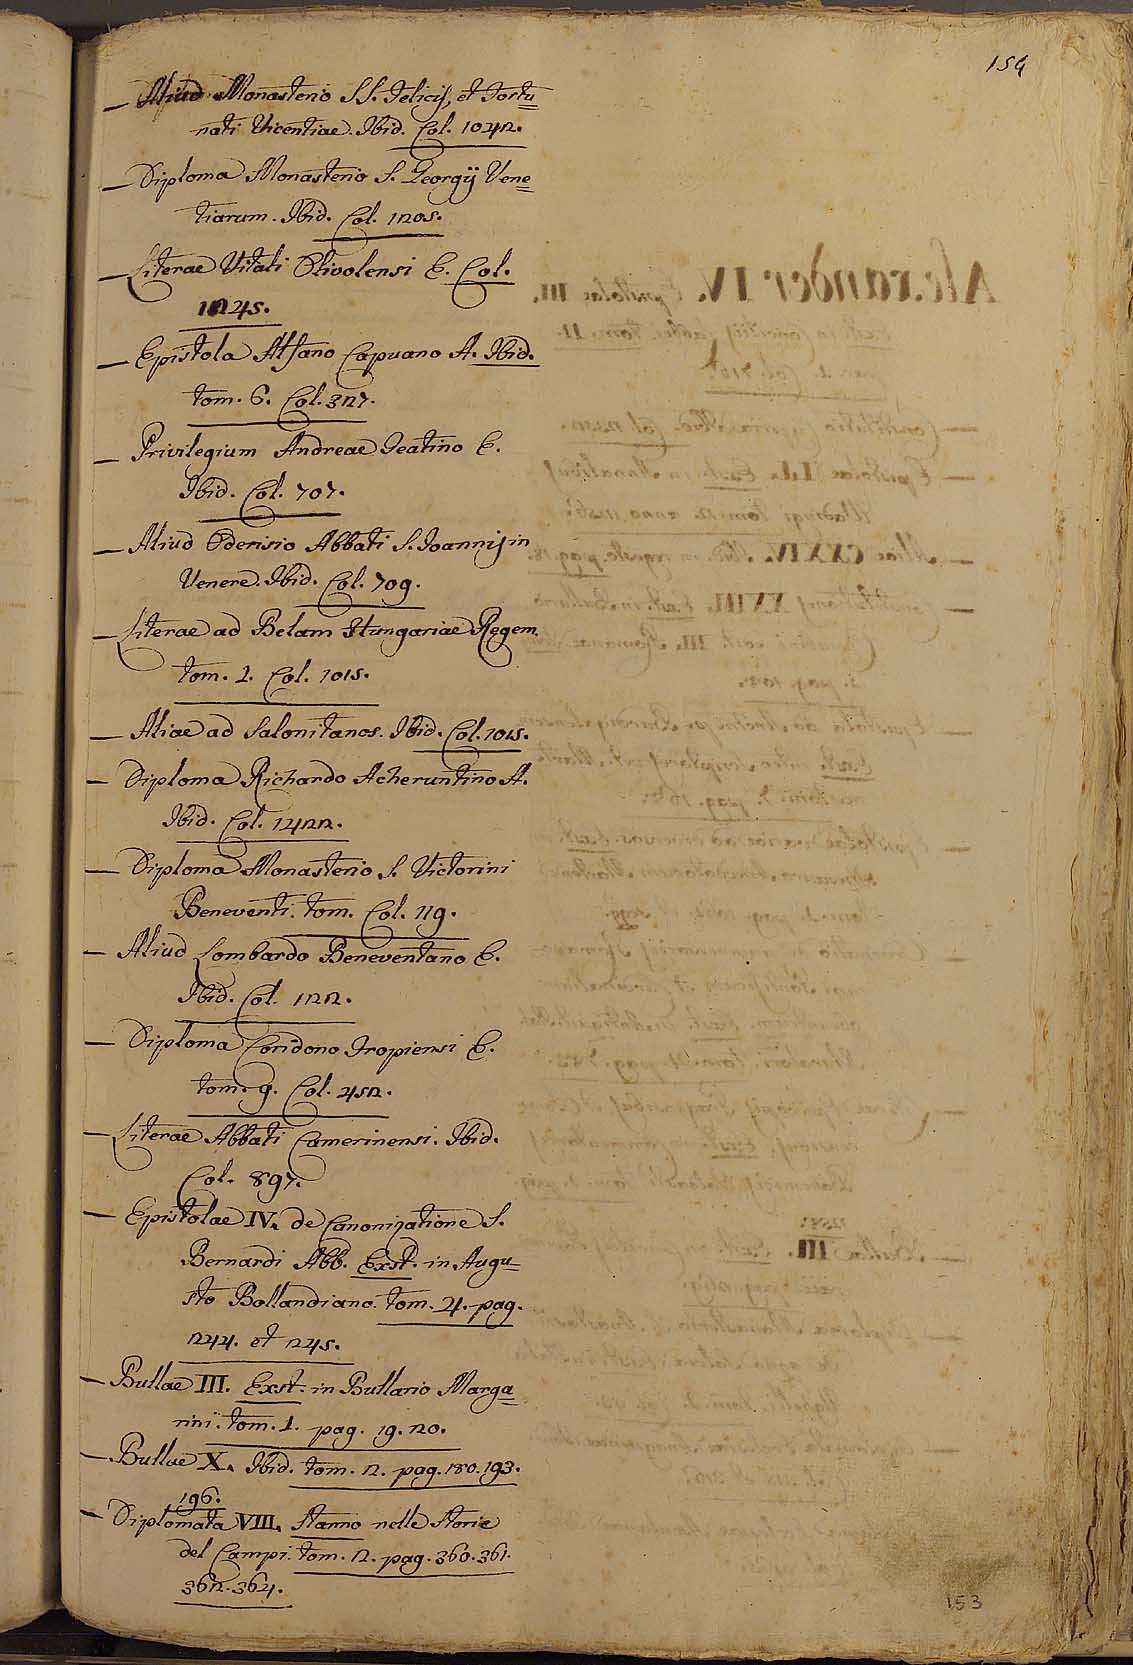 154
— Aliud Monasterio SS. Felicis, et Fortu=
nati Vicentiae. Ibid. Col. 1042.
— Diploma Monasterio S. Georgij Vene=
tiarum. Ibid. Col. 1205.
— Literae Vitali Olivolensi E. Col.
1245.
— Epistola Alfano Capuano A. Ibid.
tom. 6. Col. 327.
— Privilegium Andreae Teatino E.
Ibid. Col. 707.
— Aliud Oderisio Abbati S. Joannis in
Venere. Ibid. Col. 709.
— Literae ad Belam Hungariae Regem.
tom. 1. Col. 1015.
— Aliae ad Salonitanos. Ibid. Col. 1015.
— Diploma Richardo Acheruntino A.
Ibid. Col. 1422.
— Diploma Monasterio S. Victorini
Beneventi. tom. Col. 119.
— Aliud Lombardo Beneventano E.
Ibid. Col. 122.
— Diploma Coridono Tropiensi E.
tom. 9. Col. 452.
— Literae Abbati Camerinensi. Ibid.
Col. 897.
— Epistolae IV. de Canonizatione S.
Bernardi Abb. Exst. in Augu=
sto Bollandiano. tom. 4. pag.
244. et 245.
— Bullae III. Exst. in Bullario Marga=
rini. tom. 1. pag. 19. 20.
— Bullae X. Ibid. tom. 2. pag. 180. 193.
196.
— Diplomata VIII. stanno nelle storie
del Campi. tom. 2. pag. 360. 361.
362. 364.
153